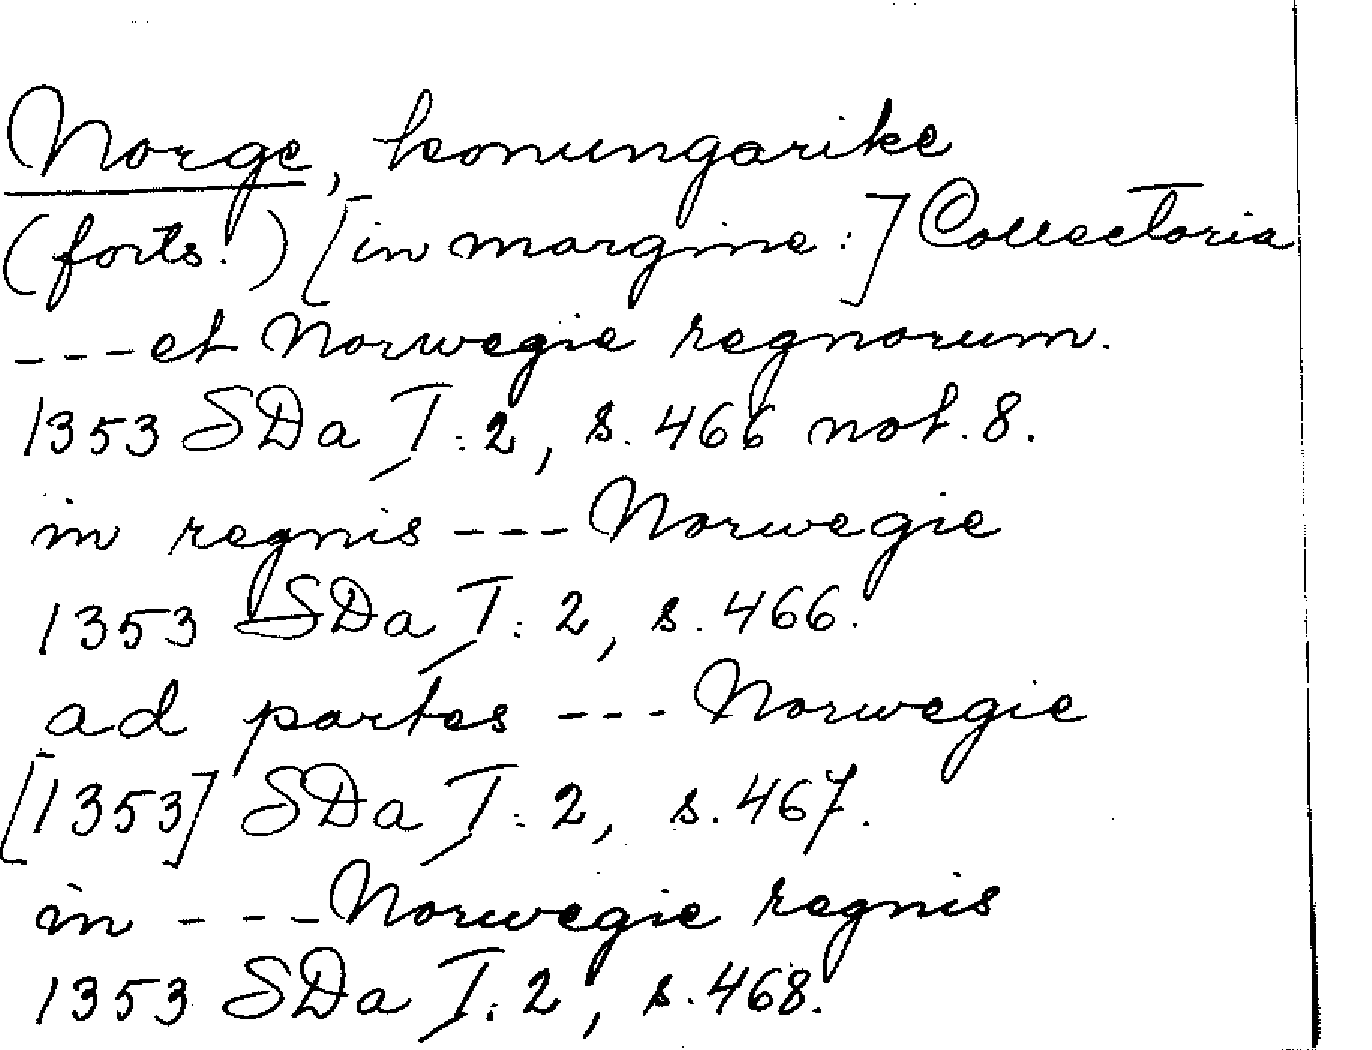 Norge, konungarike
(forts.) [in margine:] Collectoria
---et Norwegie regnorum.
1353 SDa I:2, s. 466 not. 8.
in regnis --- Norwegie
1353 SDa I:2, s. 466.
ad partes --- Norwegie
[1353] SDa I:2, s. 467.
in --- Norwegie regnis
1353 SDa I:2, s. 468.